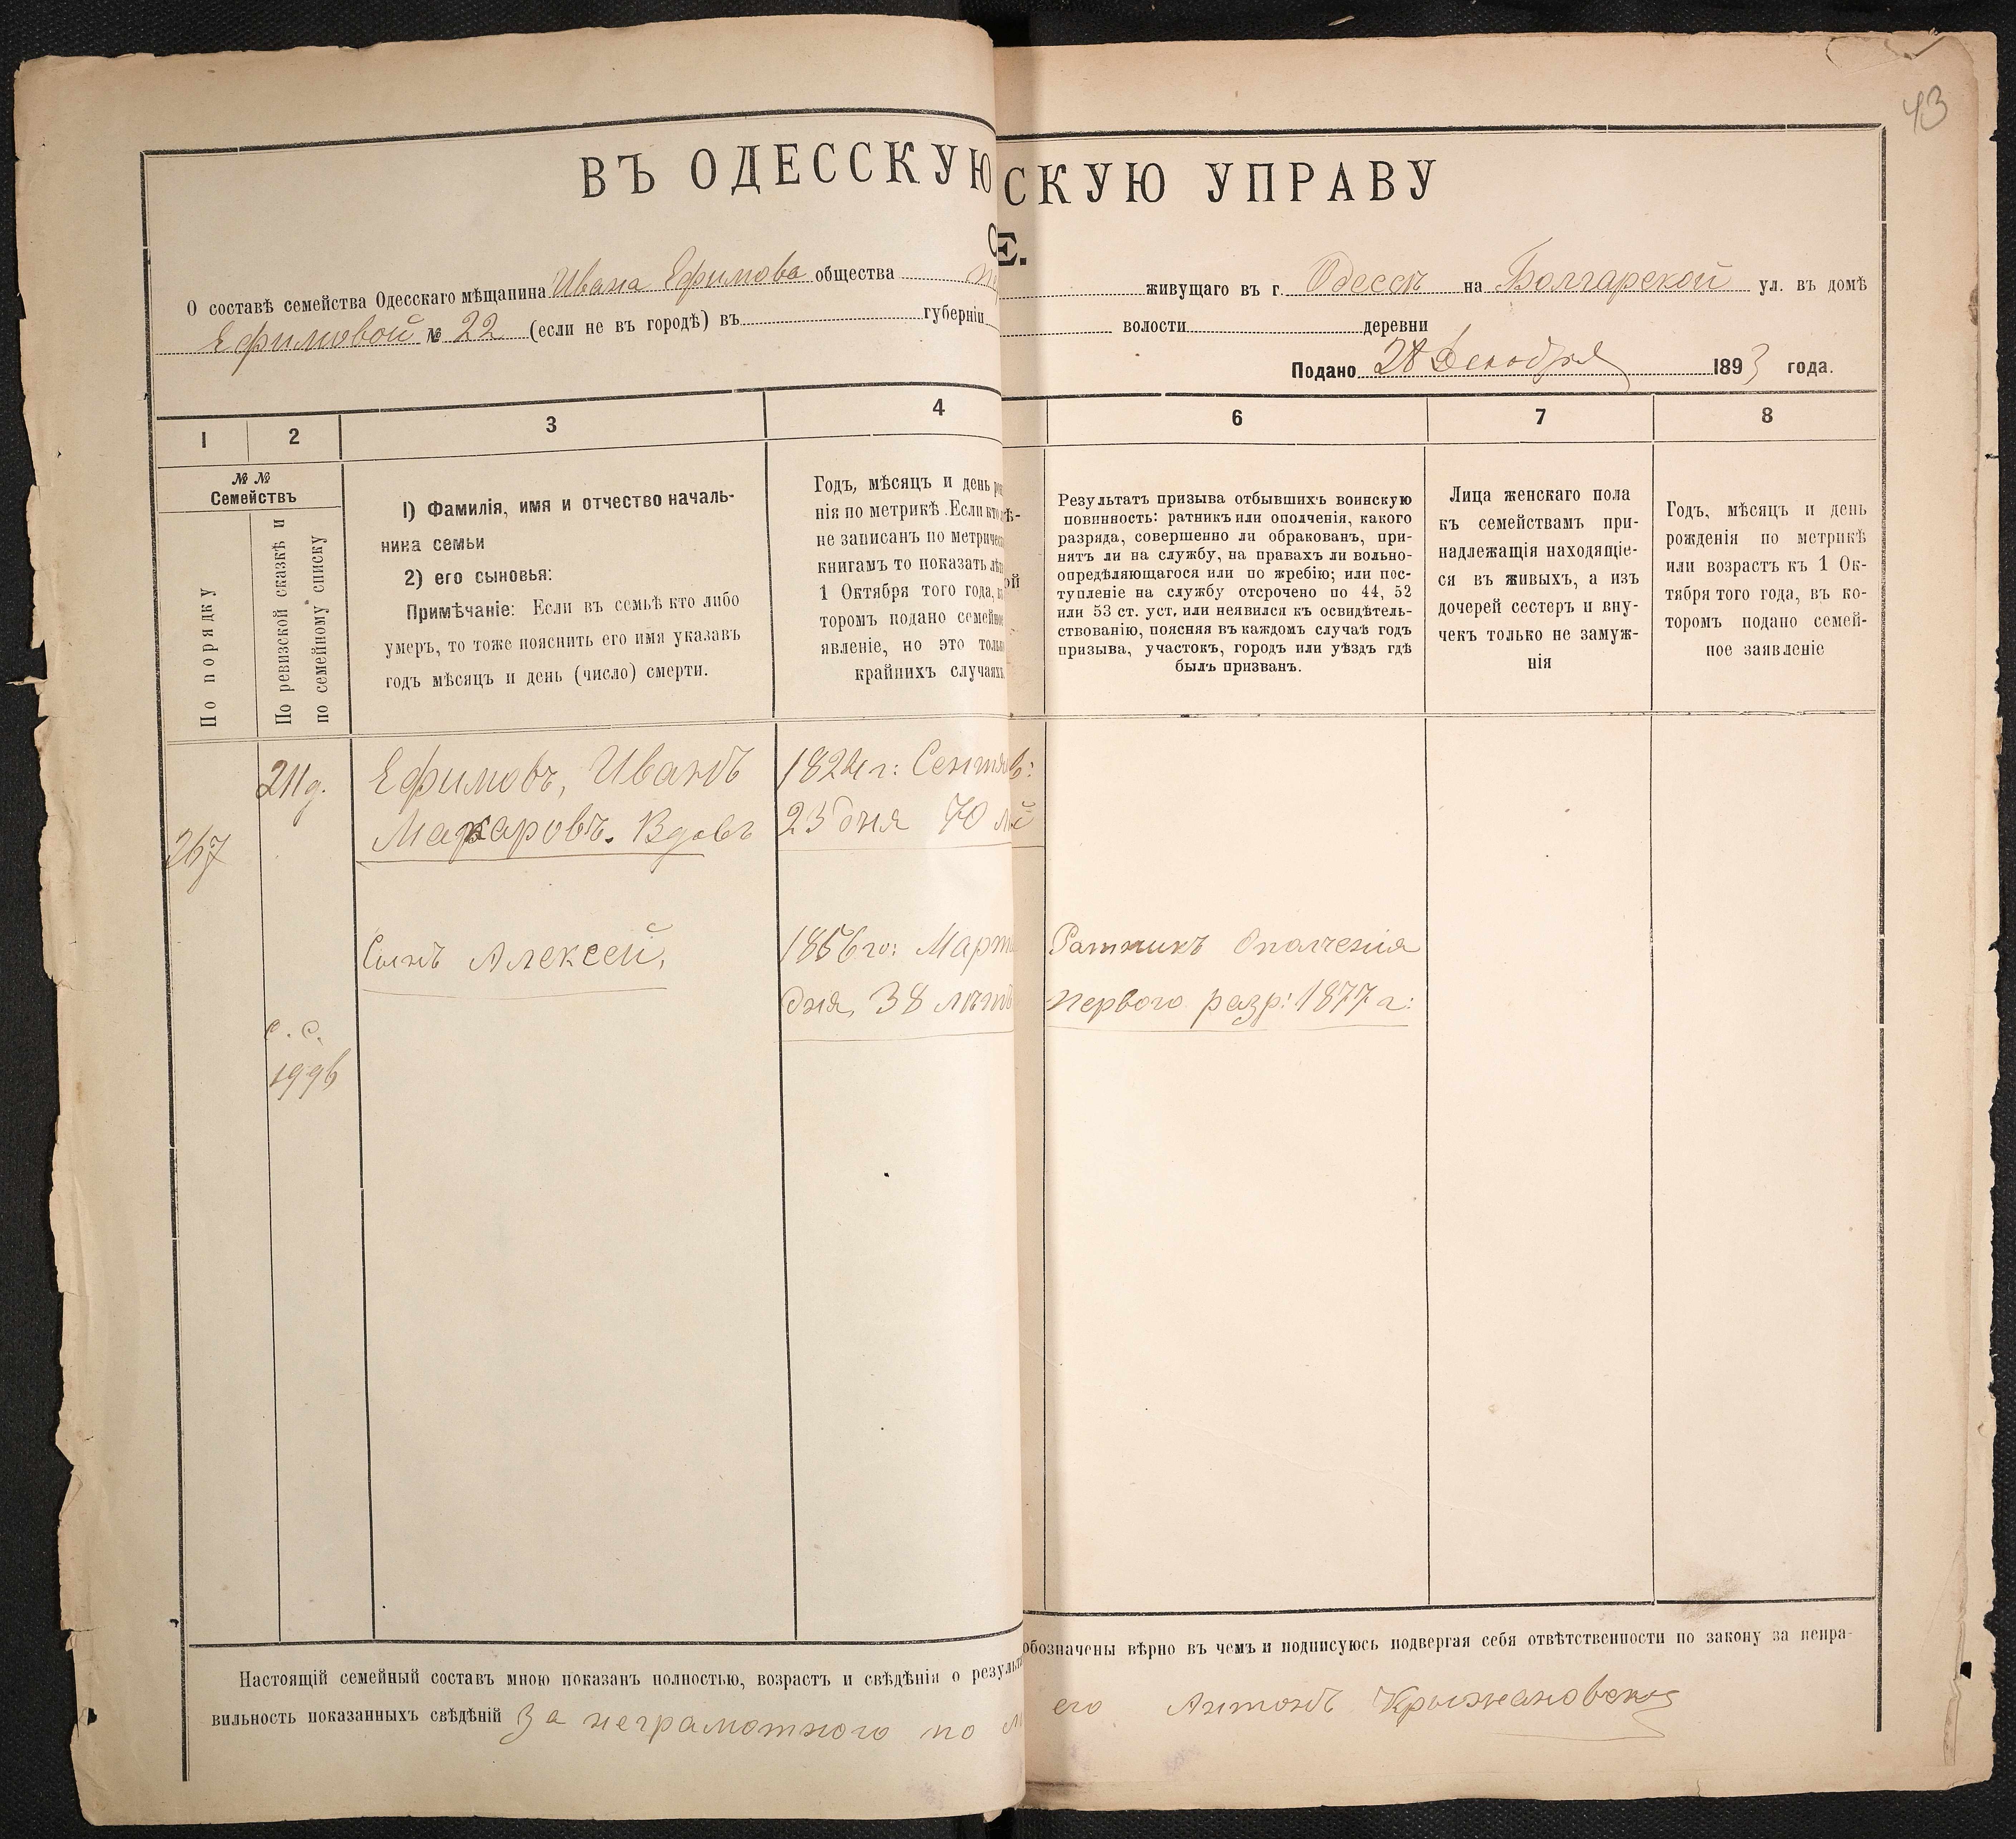 43
ВЪ ОДЕССКУЮ СКУЮ УПРАВУ
Е.
О составѣ семейства Одесскаго мѣщанина Ивана Ефимова общества живущаго въ г. Одессѣ на Болгарской ул. въ домѣ
Ефимовой № 22 (если не въ городѣ) въ губерніи волости деревни
Подано 28 Декабря 1893 года.
1 2 3 4 6 7 8
№ №
Семействъ
По порядку
По ревизской сказкѣ и
по семейному списку
1) Фамилія, имя и отчество началь-
ника семьи
2) его сыновья:
Примѣчаніе: Если въ семьѣ кто либо
умеръ, то тоже пояснить его имя указавъ
годъ мѣсяцъ и день (число) смерти.
Годъ, мѣсяцъ и день
нія по метрикѣ. Если кто
не записанъ по метриче
книгамъ то показать лѣ
1 Октября того года,
торомъ подано семейное
явленіе, но это толь
крайнихъ случаяхъ
Результатъ призыва отбывшихъ воинскую
повинность: ратникъ или ополченія, какого
разряда, совершенно ли обракованъ, при-
нятъ ли на службу, на правахъ ли вольно-
опредѣляющагося или по жребію; или пос-
тупленіе на службу отсрочено по 44, 52
или 53 ст. уст, или неявился къ освидѣтель-
ствованію, поясняя въ каждомъ случаѣ годъ
призыва, участокъ, городъ или уѣздъ гдѣ
былъ призванъ.
Лица женскаго пола
къ семействамъ при-
надлежащія находящіе-
ся въ живыхъ, а изъ
дочерей сестеръ и вну-
чекъ только не замуж-
нія
Годъ, мѣсяцъ и день
рожденія по метрикѣ
или возрастъ къ 1 Ок-
тября того года, въ ко-
торомъ подано семей-
ное заявленіе
267
211 д.
Ефимовъ, Иванъ
Макаровъ. Вдовъ
1824 г: Сентяв:
23 дня 70 л
Сынъ Алексей,
1856 го: Март
дня, 38 лѣтъ
Ратникъ Ополченія
Первого разр: 1877 г:
с. с.
1996
Настоящій семейный составъ мною показанъ полностью, возрастъ и свѣдѣнія о результ обозначены вѣрно въ чемъ и подписуюсь подвергая себя отвѣтственности по закону за непра-
вильность показанныхъ свѣдѣній За неграмотного по его Антонъ Крыжановскій